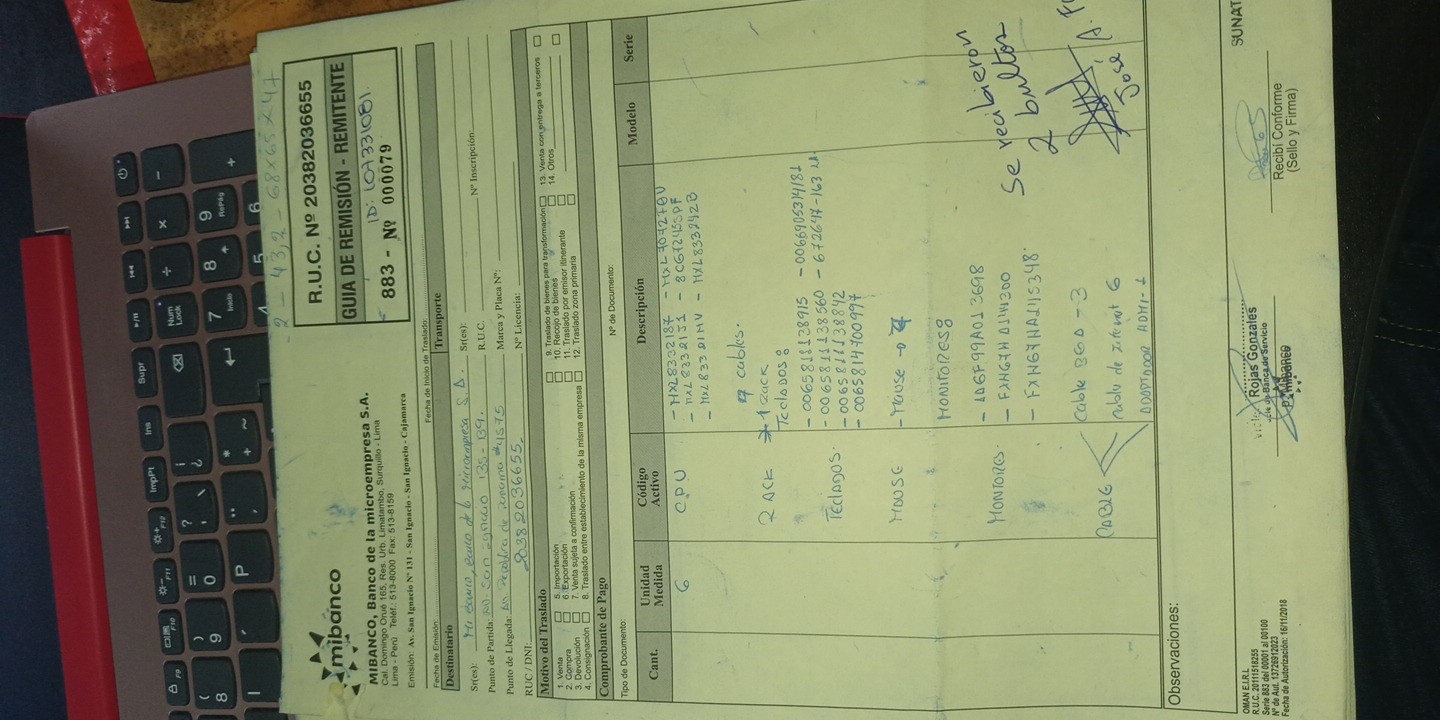 2 - 43,2 - 68x65x47
mibanco
MIBANCO, Banco de la microempresa S.A.
Cal. Domingo Orué 165, Res. Urb. Limatambo, Surquillo - Lima
Lima - Perú Teléf.: 513-8000 Fax: 513-8159
Emisión: Av. San Ignacio Nº 131 - San Ignacio - San Ignacio - Cajamarca
R.U.C. Nº 20382036655
GUIA DE REMISIÓN - REMITENTE
ID: 107331081
883 - Nº 000079
Fecha de Emisión:
Fecha de Inicio de Traslado:
Destinatario
Transporte
Sr(es): Mi banco, banco de la microempresa S.A.
Sr(es):
Punto de Partida: Av. San Ignacio 135-139.
R.U.C.
Nº Inscripción:
Punto de Llegada: Av. #4575
Marca y Placa Nº:
RUC / DNI: 20382036655
Nº Licencia:
Motivo del Traslado
1. Venta
2. Compra
3. Devolución
4. Consignación
5. Importación
6. Exportación
7. Venta sujeta a confirmación
8. Traslado entre establecimiento de la misma empresa
9. Traslado de bienes para transformación
10. Recojo de bienes
11. Traslado por emisor itinerante
12. Traslado zona primaria
13. Venta con entrega a terceros
14. Otros
Comprobante de Pago
Tipo de Documento:
Nº de Documento:
Cant.
Unidad Medida
Código Activo
Descripción
Modelo
Serie
6 CPU - MXL8332187 - MXL70727BV
- MXL83321J1 - 8CG7245SPF
- MXL83321HV - MXL833242B
RACK 1 rack 9 cables.
TECLADOS. Teclados
- 006581138915 - 0066905314181
- 006581138560 - 672647-163
- 006581138842
- 0065814700997
MOUSE - Mouse
MONITORES. MONITORES
- AD6F99A013698
- FXHG7HD1141300
- FXHG7HA115348.
CABLE Cable BGA - 3
Cable de internet 6
ADAPTADOR ADMI-1
Se recibieron
2 bultos
José
Observaciones:
OMAN E.I.R.L.
R.U.C. 20111518255
Serie 883 del 00001 al 00100
Nº de Aut. 13726912023
Fecha de Autorización: 16/11/2018
Rojas Gonzales
de Banca de Servicio
Mibanco
Recibí Conforme
(Sello y Firma)
SUNAT